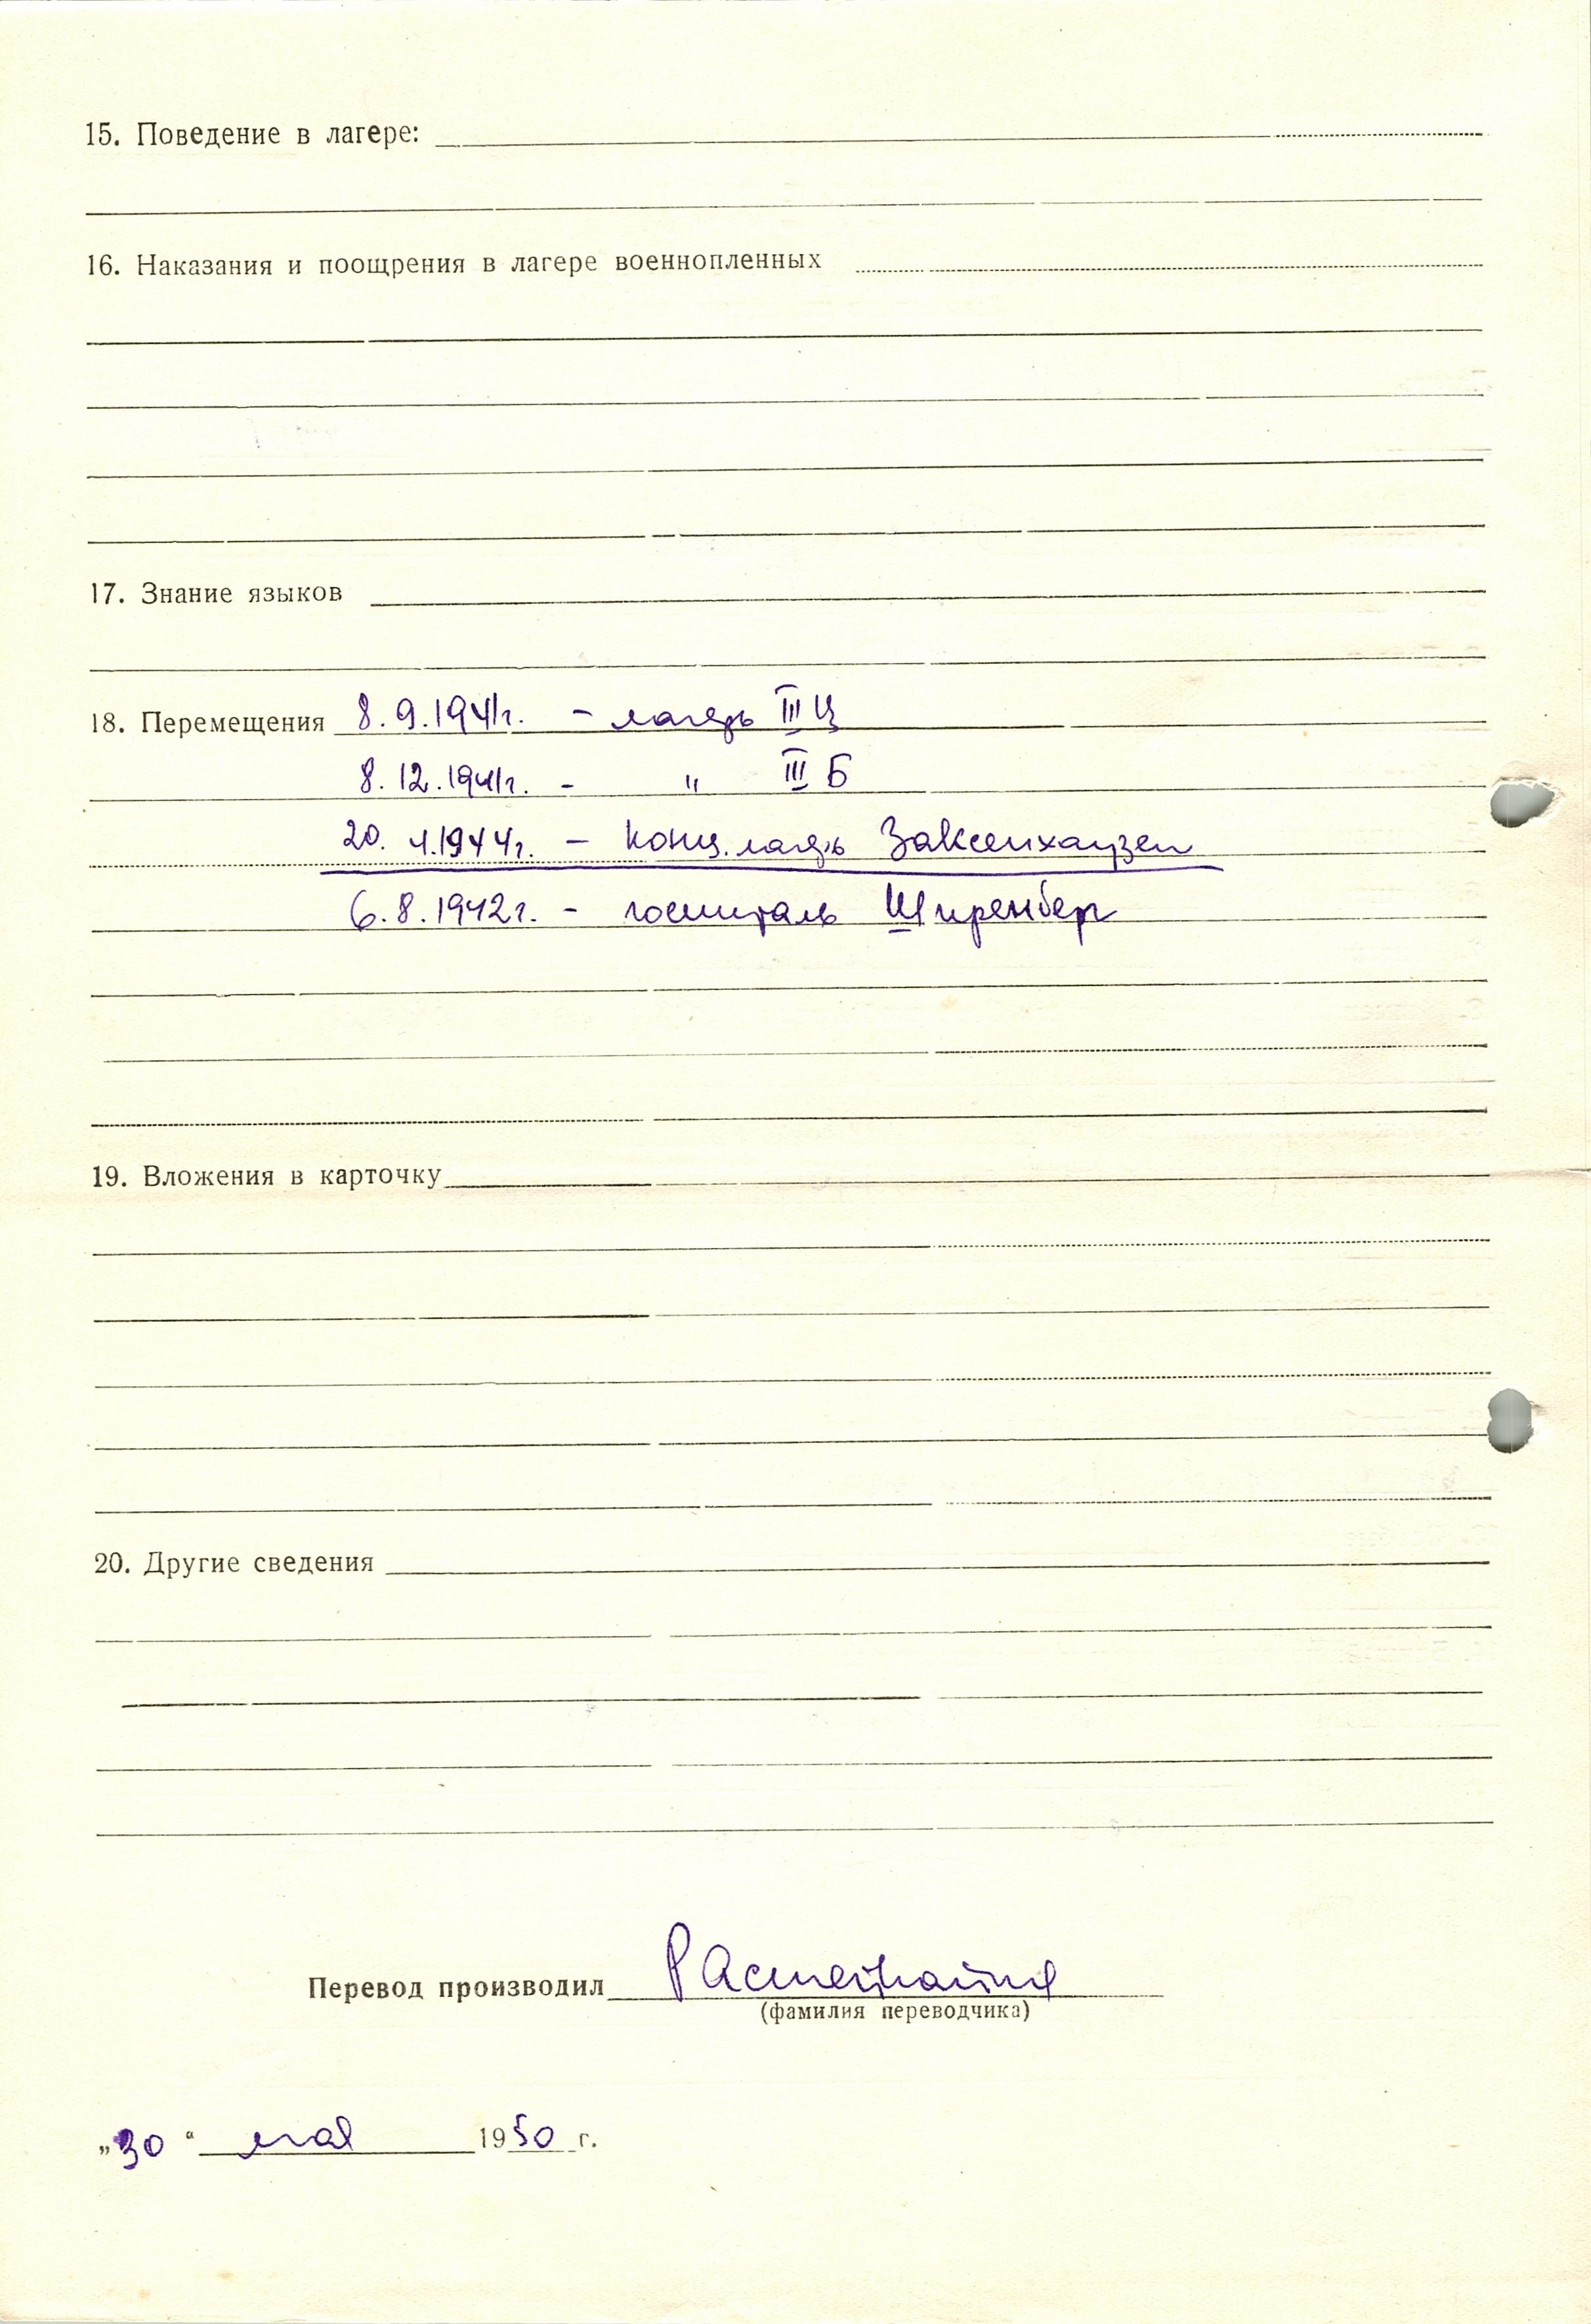 15. Поведение в лагере:
16. Наказания и поощрения в лагере военнопленных
17. Знание языков
18. Перемещения 8.9.1941г. - лагерь III Ц
8.12.1941г. - " III Б
20. 4.1944г. - Конц.лагерь Заксенхаузен
6.8.1942г. - госпиталь Шпренберг
19. Вложения в карточку
20. Другие сведения
Перевод производил
(фамилия переводчика)
„30“ мая 1950 г.